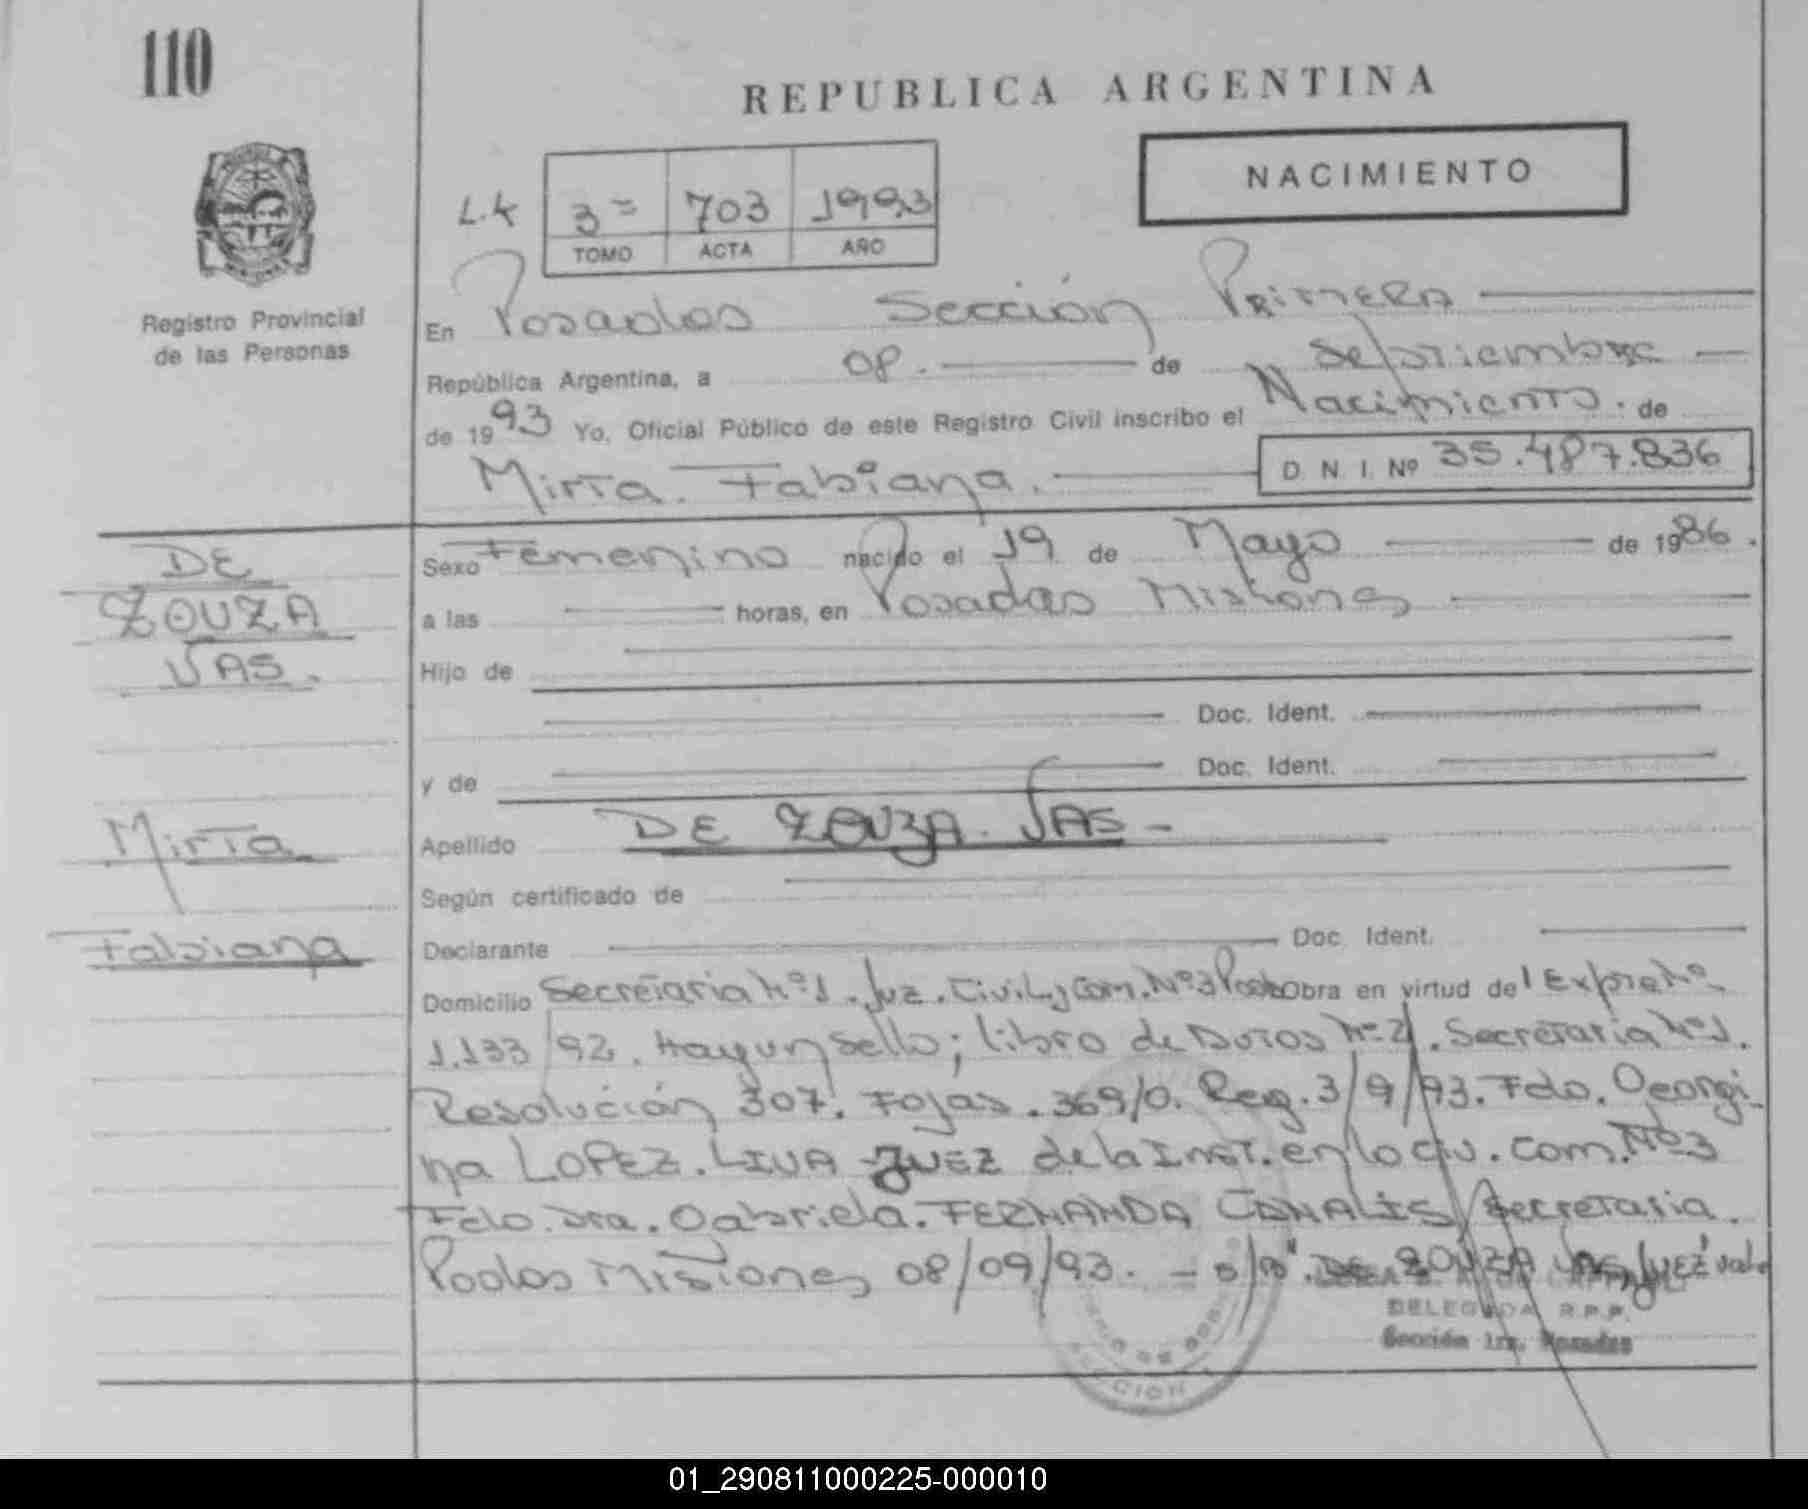 110
REPUBLICA ARGENTINA
NACIMIENTO
L.4 3= 703 1993
TOMO ACTA AÑO
Registro Provincial
de las Personas
En Posadas Sección Primera
República Argentina, a 08. de Septiembre
de 1993 Yo, Oficial Público de este Registro Civil inscribo el Nacimiento. de
Mirta. Fabiana. D. N. I. Nº 35.487.836
DE
ZOUZA
VAS.
Mirta
Fabiana
Sexo Femenino nacido el 19 de Mayo de 1986.
a las horas, en Posadas Misiones
Hijo de
Doc. Ident.
y de Doc. Ident.
Apellido DE ZOUZA. VAS -
Según certificado de
Declarante Doc. Ident.
Domicilio Secretaria Nº1. Juz. Civil y Com. Nº3 Obra en virtud del Expte Nº
1.133/92. Hay un sello; libro de Autos Nº2. Secretaria Nº1.
Resolución 307. Fojas. 369/0. Reg. 3/9/93. Fdo. Georgi-
na LOPEZ. LIVA JUEZ de la Inst. en lo civ. com. Nº3
Fdo. Dra. Gabriela. FERNANDA CANALIS Secretaria.
Podas Misiones 08/09/93. - DE ZOUZA VAS JUEZ vale
DELEGADA R.P.P.
Sección 1ra. Posadas
SECCION
01_290811000225-000010